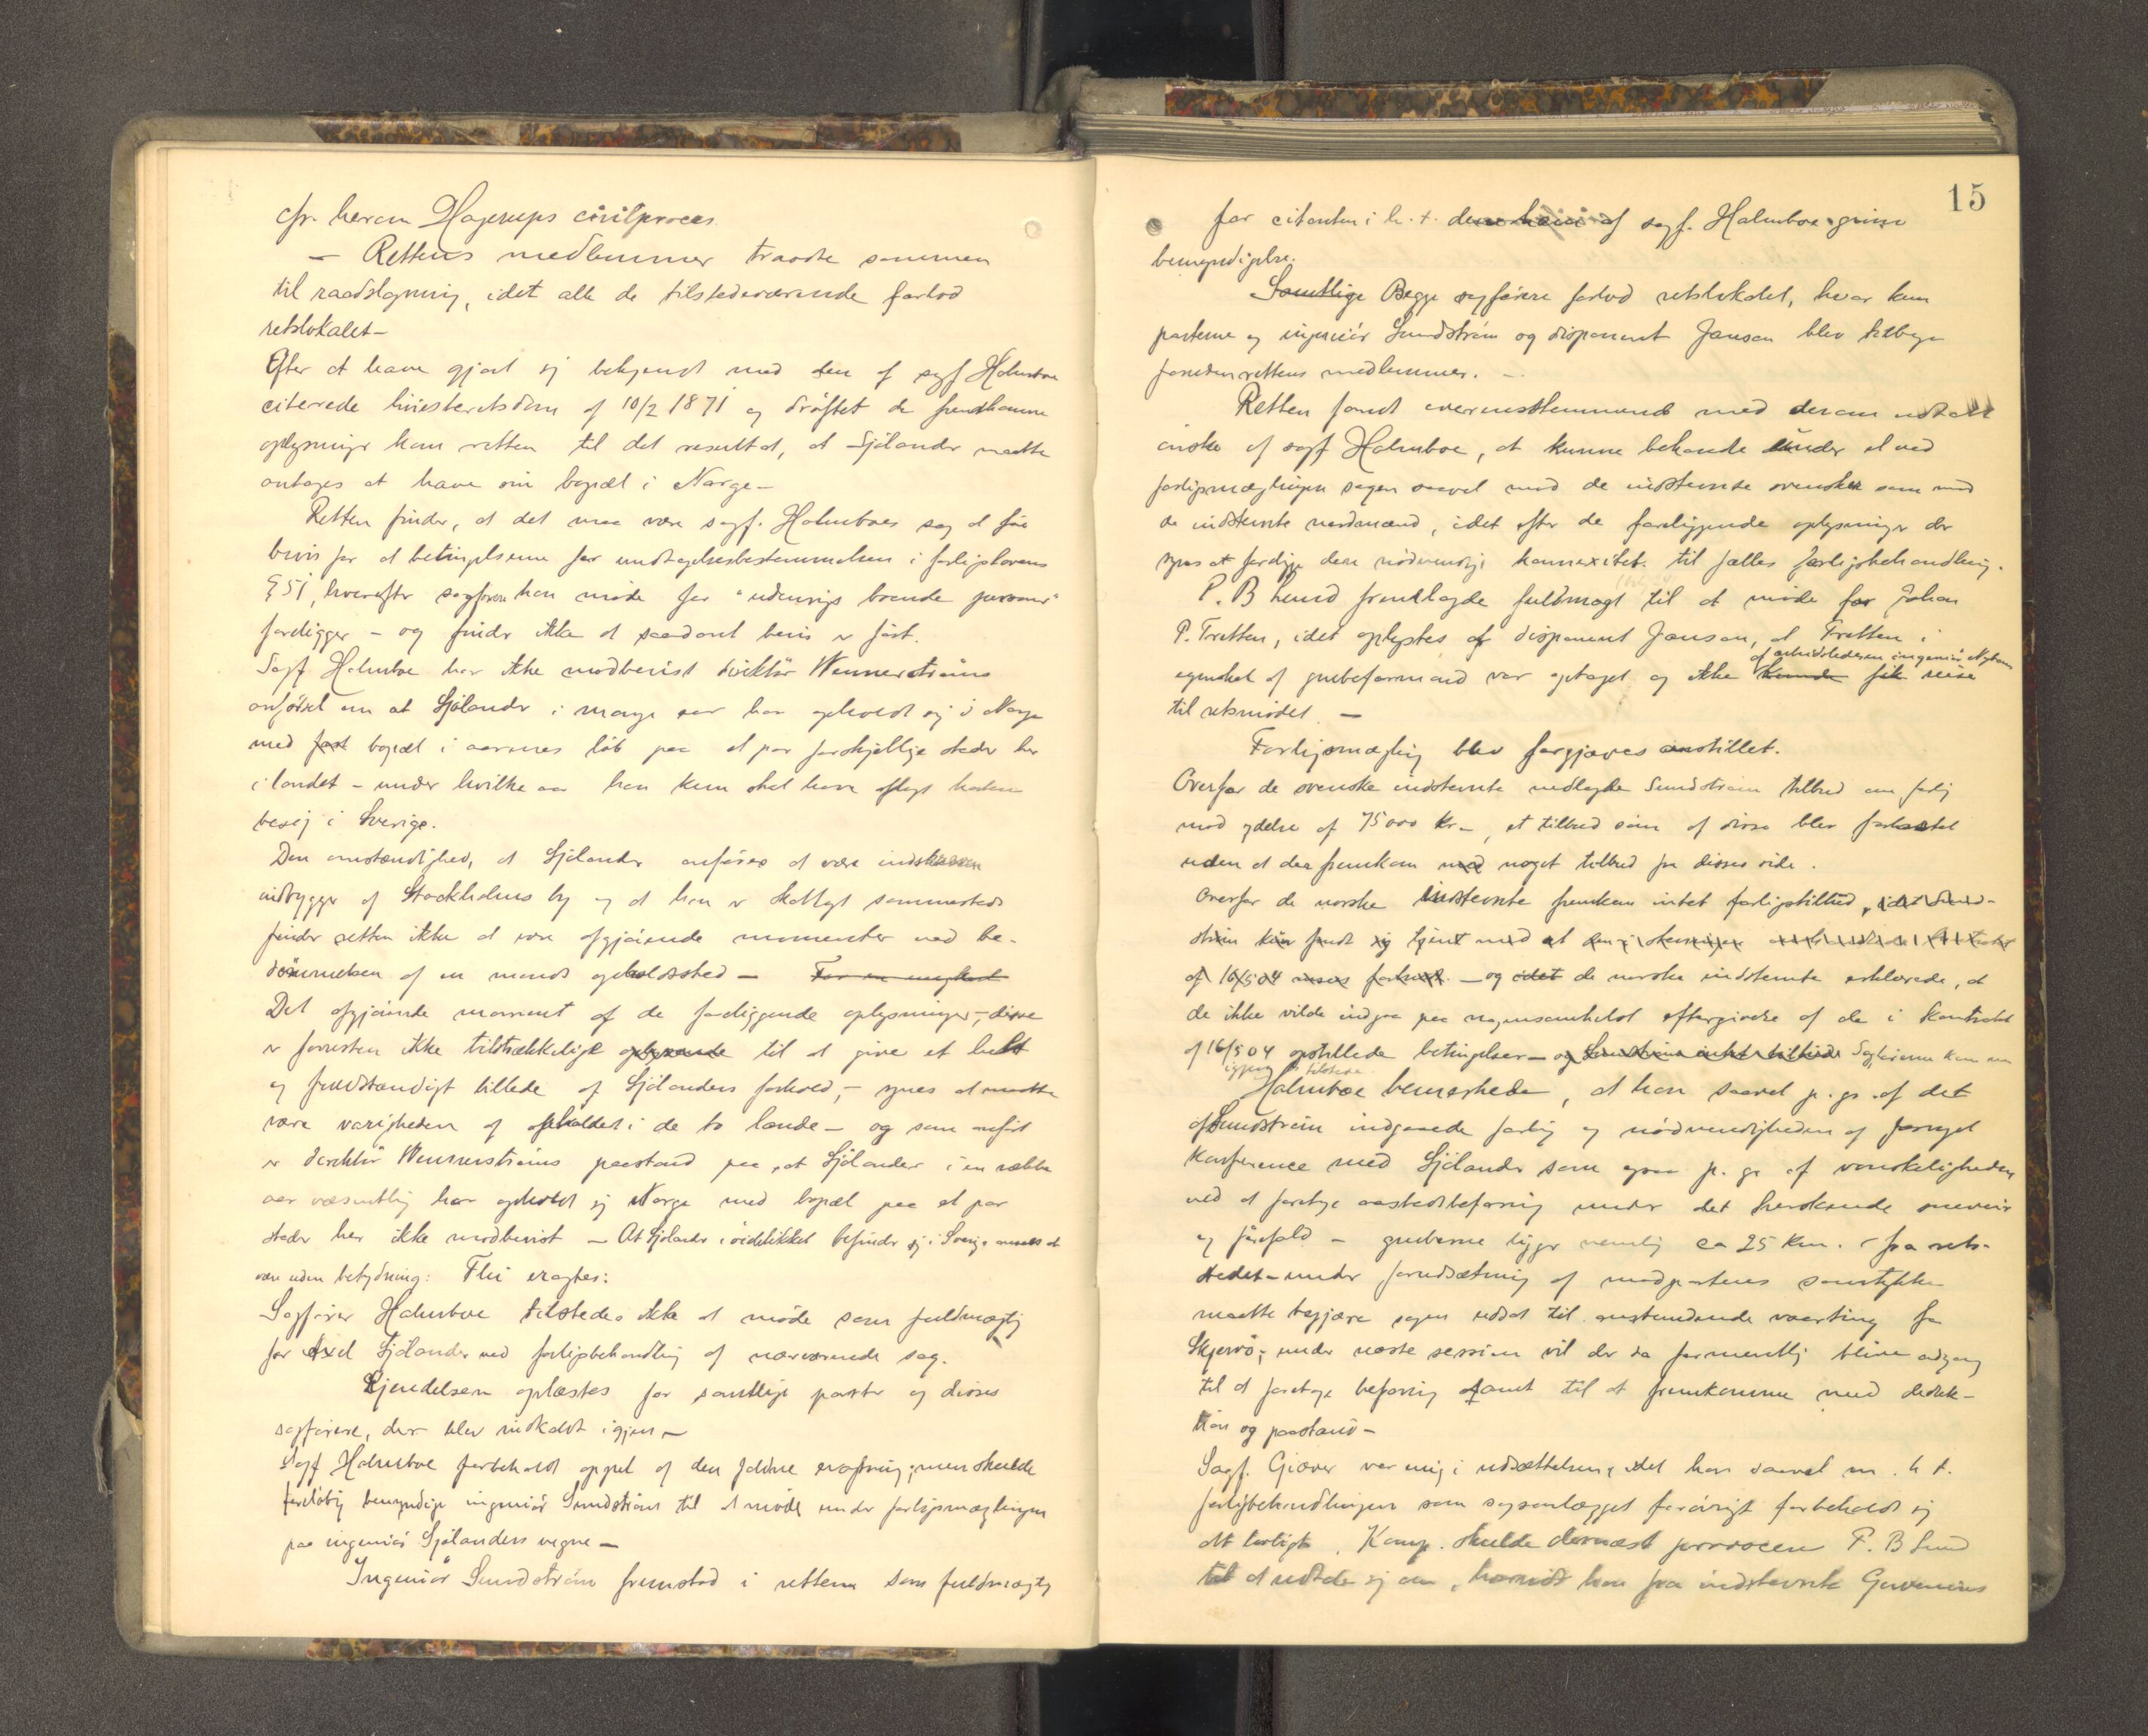 cfr. herom Hagerups civilproces.
— Rettens medlemmer traadte sammen
til raadslagning, idet alle de tilstedeværende forlod
retslokalet —
Efter at have gjort sig bekjendt med den af sagf Holmboe
citerede høiesteretsdom af 10/2 1871 og drøftet de fremkomne
oplysninger kom retten til det resultat, at Sjölander maatte
antages at have sin bopæl i Norge —
Retten finder, at det maa være sagf. Holmboes sag at føre
bevis for at betingelserne for undtagelsesbestemmelsen i forligslovens
§ 51, hvorefter sagfører kan møde for "udenrigs boende personer"
foreligger — og finder ikke at saadant bevis er ført.
Sagf Holmboe har ikke modbevist direktør Wennerströms
anførsel om at Sjölander i mange aar har opholdt sig i Norge
med fast bopæl i aarenes løb paa et par forskjellige steder her
i landet — under hvilke aar han kun skal have aflagt
besøg i Sverige.
Den omstændighed, at Sjölander anføres at være indskreven
indbygger af Stockholms by og at han er skatlagt sammesteds
finder retten ikke at være afgjørende momenter ved be-
dømmelsen af en mands opholdssted —
Det afgjørende moment af de foreliggende oplysninger, — disse
er forresten ikke tilstrækkelige oplysende til at give et helt
og fuldstændigt billede af Sjölanders forhold, — synes at maatte
være varigheden af opholdet i de to lande — og som anført
er direktør Wennerströms paastand paa, at Sjölander i en række
aar væsentlig har opholdt sig i Norge med bopæl paa et par
steder her ikke modbevist — At Sjölander i øieblikket befinder sig i Sverige ansees at
være uden betydning: Thi eragtes:
Sagfører Holmboe tilstedes ikke at møde som fuldmægtig
for Axel Sjölander ved forligsbehandling af nærværende sag.
Kjendelsen oplæstes for samtlige parter og disses
sagførere, der blev indkaldt igjen —
Sagf Holmboe forbeholdt appel af den faldne eragtning, men skulde
foreløbig bemyndige ingeniør Sundström til at møde under forligsmæglingen
paa ingeniør Sjölanders vegne —
Ingeniør Sundström fremstod i retten som fuldmægtig
15
for citanten i h. t. den af sagf. Holmboe givne
bemyndigelse.
Samtlige Begge sagførere forlod retslokalet, hvor kun
parterne og ingeniør Sundström og disponent Jansson blev tilbage
foruden rettens medlemmer. —
Retten fandt overensstemmende med derom udtalt
ønske af sagf Holmboe, at kunne behandle under et ved
forligsmæglingen sagen saavel med de indstevnte svensker som med
de indstevnte nordmænd, idet efter de foreliggende oplysninger der
synes at foreligge den nødvendige konnexitet til fælles forligsbehandling.
P. B Lund fremlagde fuldmagt til at møde for Johan
P. Tretten, idet oplystes af disponent Jansson, at Tretten i
af arbeidslederen ingeniør
egenskab af grubeformand var optaget og ikke kunde fik reise
til retsmødet. —
Forligsmægling blev forgjæves anstillet.
Overfor de svenske indstevnte nedlagde Sundström tilbud om forlig
mod ydelse af 75000 kr —, et tilbud som af disse blev forkastet
uden at der fremkom med noget tilbud fra disses side.
Overfor de norske indstevnte fremkom intet forligstilbud, idet Sund-
ström kan sig tjent med at den
af 16/5 04 — og idet de norske indstevnte erklærede, at
de ikke vilde indgaa paa nogensomhelst eftergivelse af de i kontrakt
af 16/5 04 opstillede betingelser — og Sundström intet tilbud Sagførerne kom nu
igjen tilstede
Holmboe bemerkede, at han saavel p. gr. af det
af Sundström indgaaede forlig og nødvendigheden af fornyet
konference med Sjölander som ogsaa p. gr. af vanskeligheden
ved at foretage aastedsbefaring under det herskende sneveir
og snefald — gruberne ligger nemlig ca 25 km. fra rets-
stedet — under forudsætning af modpartens samtykke
maatte begjære sagen udsat til anstundende vaarting for
Skjervø; under næste session vil der da formentlig blive adgang
til at foretage befaring samt til at fremkomme med deduk-
tion og paastand —
Sagf. Giæver var enig i udsættelsen, idet han saavel m. h t.
forligsbehandlingen som sagsanlægget forøvrigt forbeholdt sig
alt lovligt. Komp. skulde dernæst provocere P. B Lund
til at udtale sig om, hvorvidt han fra indstevnte